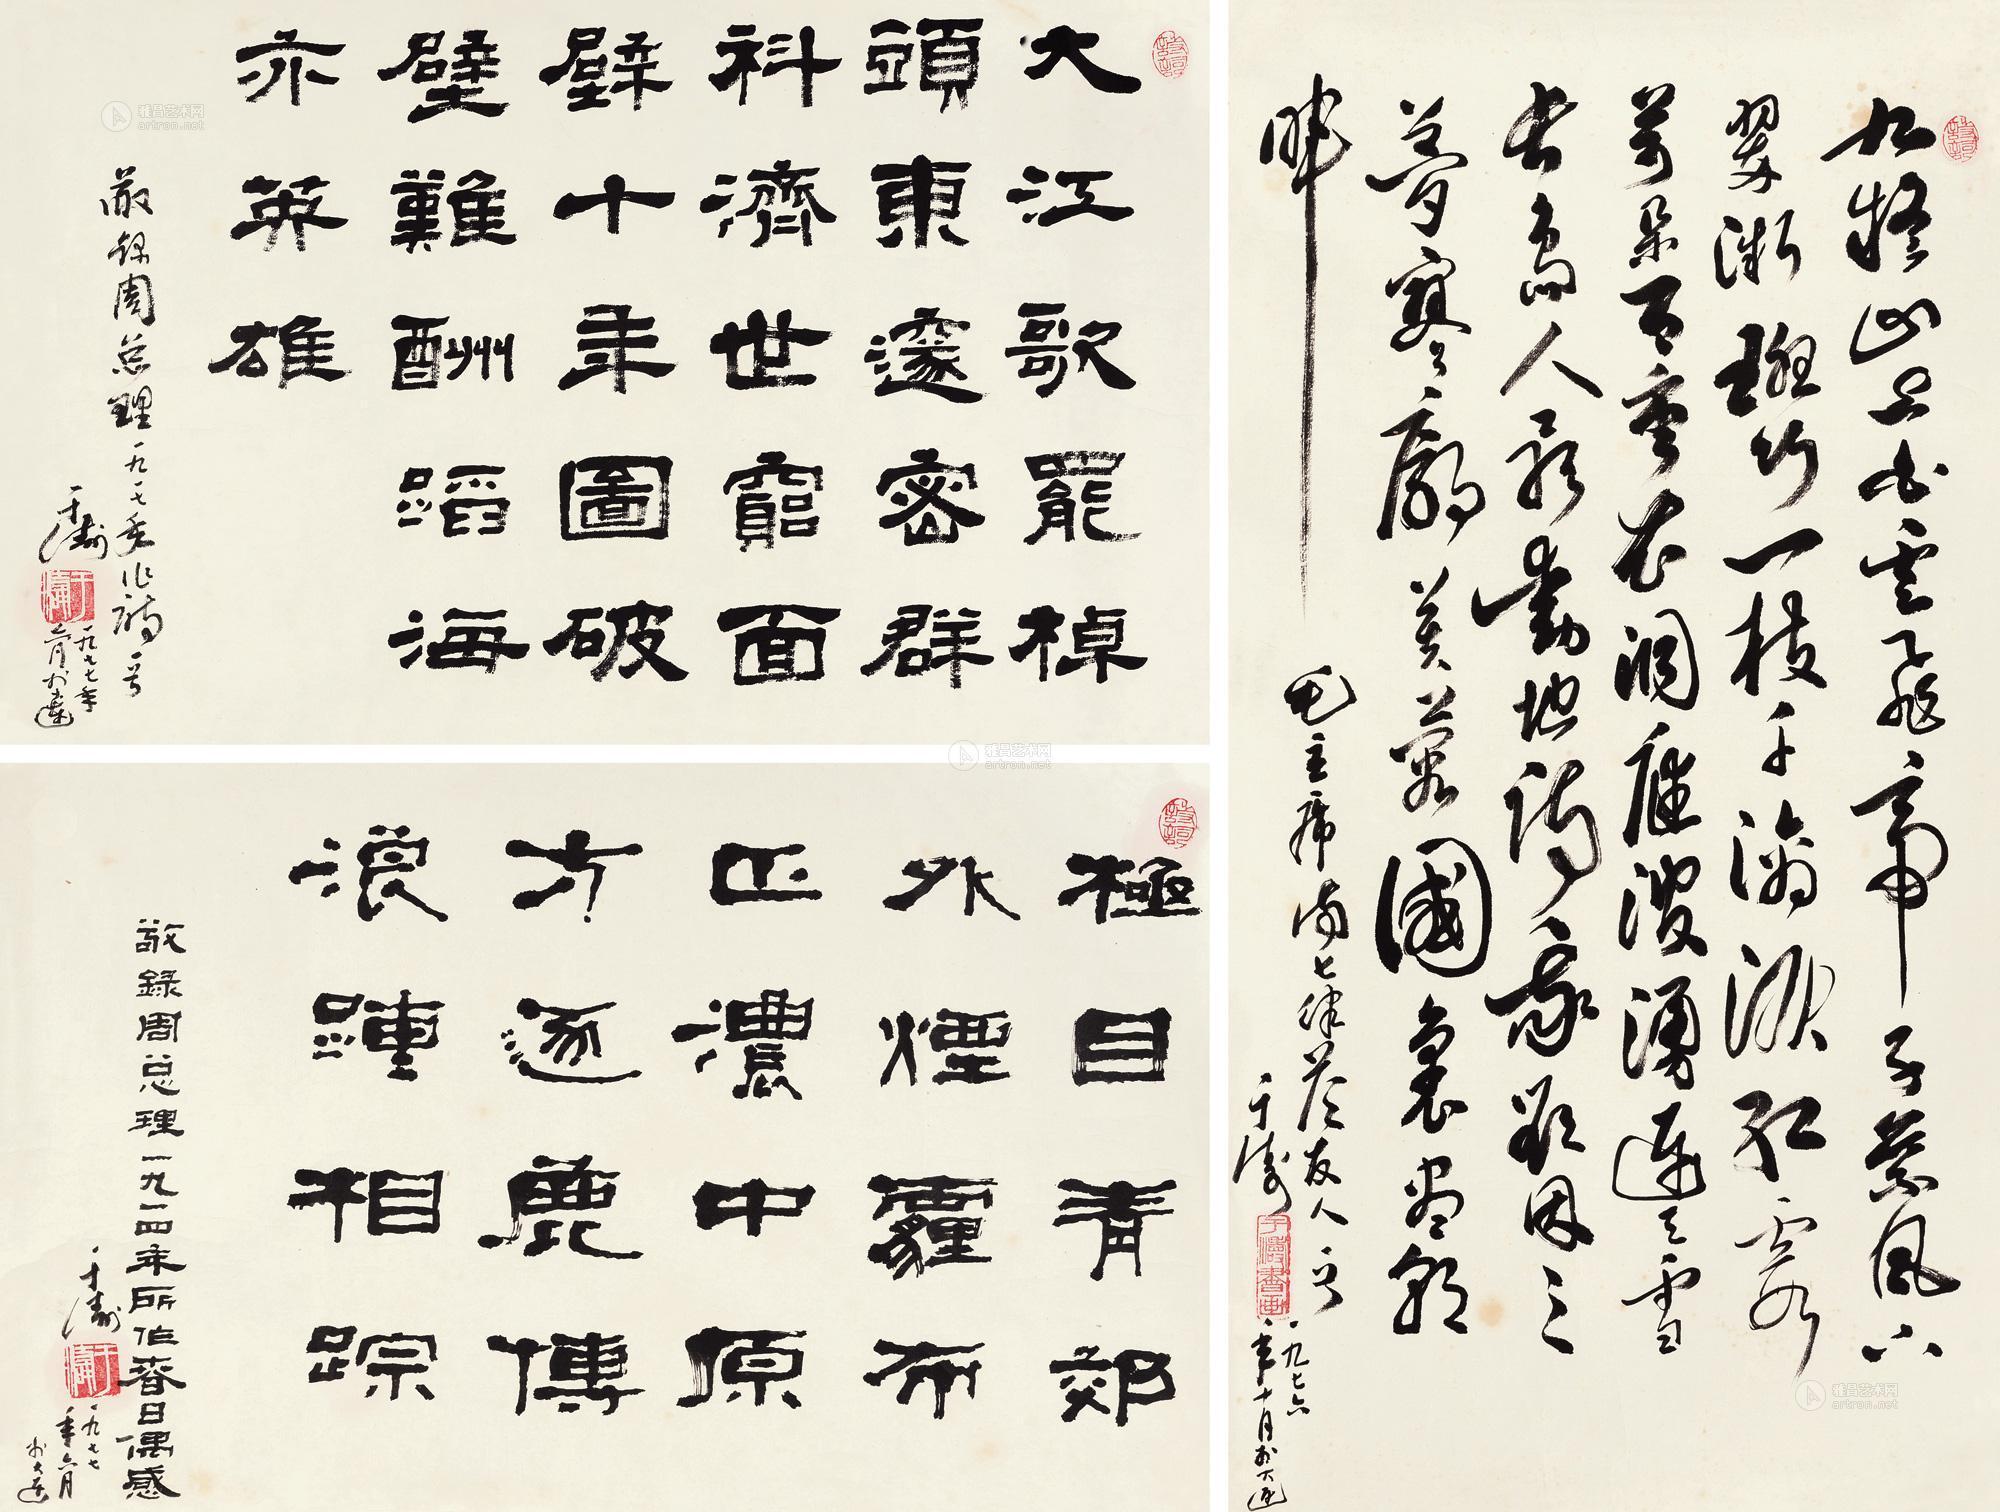 大江歌罷棹
頭東邃密群
科濟世窮面
壁十年圖破
壁難酬蹈海
亦英雄
敬錄周总理一九一七年作詩一首
于濤
一九七七年
六月於大連
極目青郊
外煙霾布
正濃中原
方逐鹿博
浪踵相踪
敬錄周总理一九一四年所作春日偶感
于濤
一九七七
年六月
於大連
九嶷山上白雲飛帝子乘風下
翠微斑竹一枝千滴淚紅霞
萬朵百重衣洞庭波湧連天雪
長島人歌動地詩我欲因之
夢寥廓芙蓉國裏盡朝
暉
毛主席詩七律答友人一首
于濤
于濤書画
一九七六
年十月於大連
雅昌艺术网
artron.net
雅昌艺术网
artron.net
雅昌艺术网
artron.net